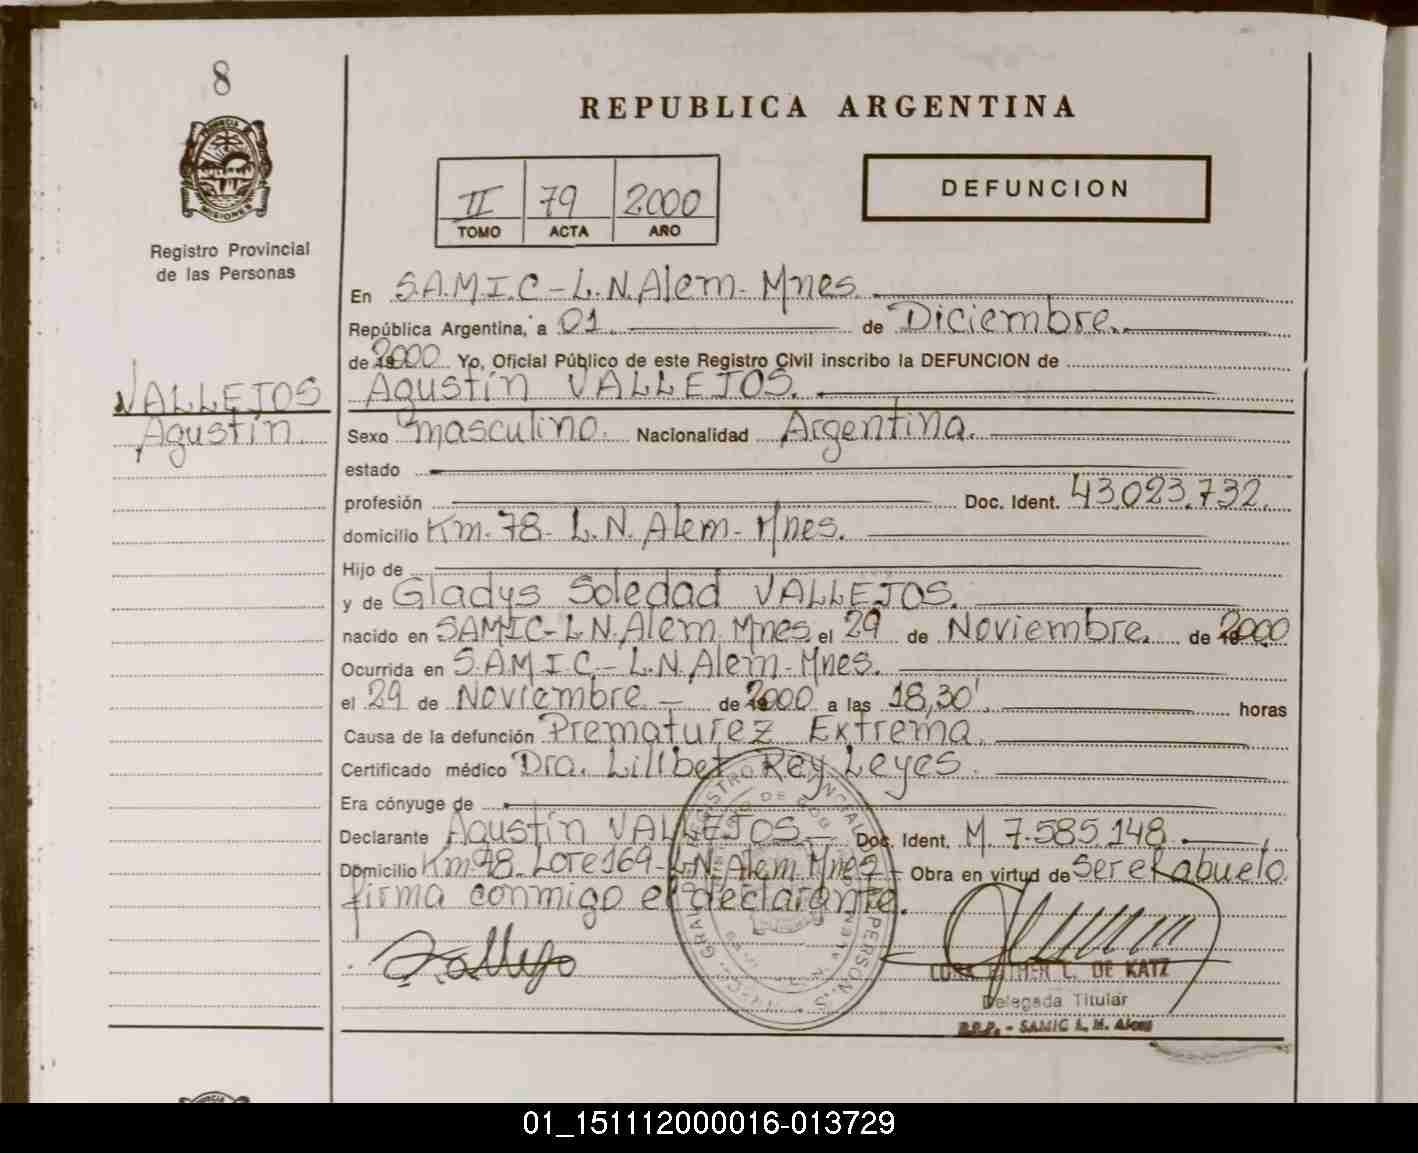 8
PROVINCIA
MISIONES
Registro Provincial
de las Personas
REPUBLICA ARGENTINA
II 79 2000
TOMO ACTA AÑO
DEFUNCION
En S.A.M.I.C - L.N.Alem - Mnes.
República Argentina, a 01 de Diciembre.
de 2000 Yo, Oficial Público de este Registro Civil inscribo la DEFUNCION de
Agustín VALLEJOS.
VALLEJOS
Agustín
Sexo masculino. Nacionalidad Argentina.
estado
profesión Doc. Ident. 43.023.732.
domicilio Km. 78 - L.N. Alem - Mnes.
Hijo de
y de Gladys Soledad VALLEJOS.
nacido en SAMIC - L.N. Alem Mnes el 29 de Noviembre. de 2000
Ocurrida en S.A.M.I.C - L.N. Alem - Mnes.
el 29 de Noviembre de 2000 a las 18,30' horas
Causa de la defunción Prematurez Extrema.
Certificado médico Dra. Lilibet Rey Leyes.
Era cónyuge de
Declarante Agustín VALLEJOS - Doc. Ident. M. 7.585.148.
Domicilio Km 78. Lote 169 - L.N. Alem Mnes - Obra en virtud de ser el abuelo
firma conmigo el declarante.
ESTHER L. DE KATZ
Delegada Titular
R.P.P. - SAMIC L. N. Alem
01_151112000016-013729